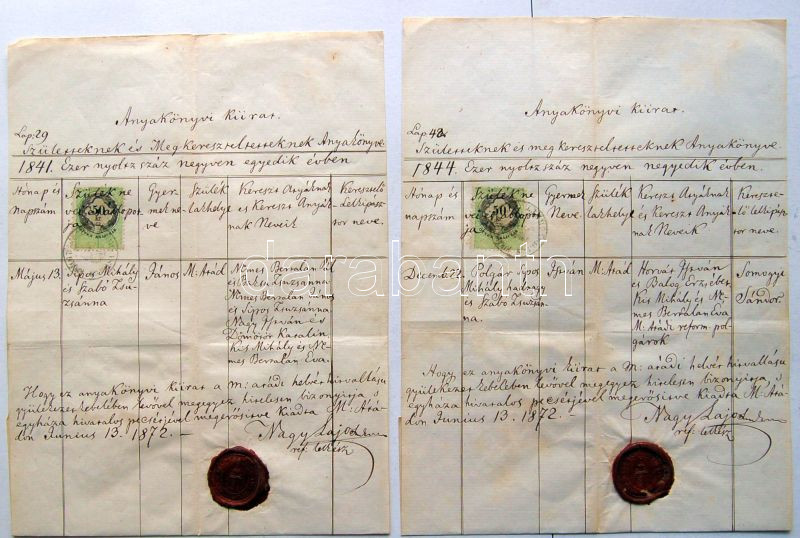 Anyakönyvi kiirat.
Lap: 29
Születteknek és Megkereszteltetteknek Anyakönyve
1841. Ezer nyoltz száz negyven egyedik évben
Hónap és napszám
Szülék ne
50
Gyermek neve
Szülék lakhelye
Kereszt Atyáknak és Kereszt Anyáknak Neveik
Keresztelő lelkipásztor neve.
Május 13.
Sipos Mihály
és Szabó Zsu-
zsánna
János
M: Arád
Nemes Bertalan
Nemes Bertalan János
és Sipos Zsuzsanna
Nagy István és
Dömötör Katalin
Kis Mihály és Ne-
mes Bertalan Eva.
Hogy ez anyakönyvi kiirat a M: arádi helvét hitvallásu
gyülekezet kebelében lévővel megegyez hitelesen bizonyitja, s
egyháza hivatalos pecsétjével megerősitve kiadta M: Ará-
don Junius 13. 1872.
Nagy Lajos
ref. lelkész
Anyakönyvi kiirat.
Lap: 42
Születteknek és megkereszteltetteknek Anyakönyve
1844. Ezer nyoltz száz negyven negyedik évben.
Hónap és napszám
Szülék ne
50
Gyermek Neve.
Szülék lakhelye
Kereszt Atyáknak és Kereszt Anyáknak Neveik
Keresztelő lelkipásztor neve.
Decemb 22.
Polgár Sipos
Mihály hadnagy
és Szabó Zsuzsán-
na.
István
M: Arád
Horváth István
és Balog Erzsébet
Kis Mihály és Ne-
mes Bertalan Eva
M: Arádi reform. pol-
gárok
Somogyi
Sándor
Hogy ez anyakönyvi kiirat a M: arádi helvét hitvallásu
gyülekezet kebelében lévővel megegyez hitelesen bizonyitja, s
egyháza hivatalos pecsétjével megerősitve kiadta M: Ará-
don Junius 13. 1872.
Nagy Lajos
ref. lelkész
darabanth